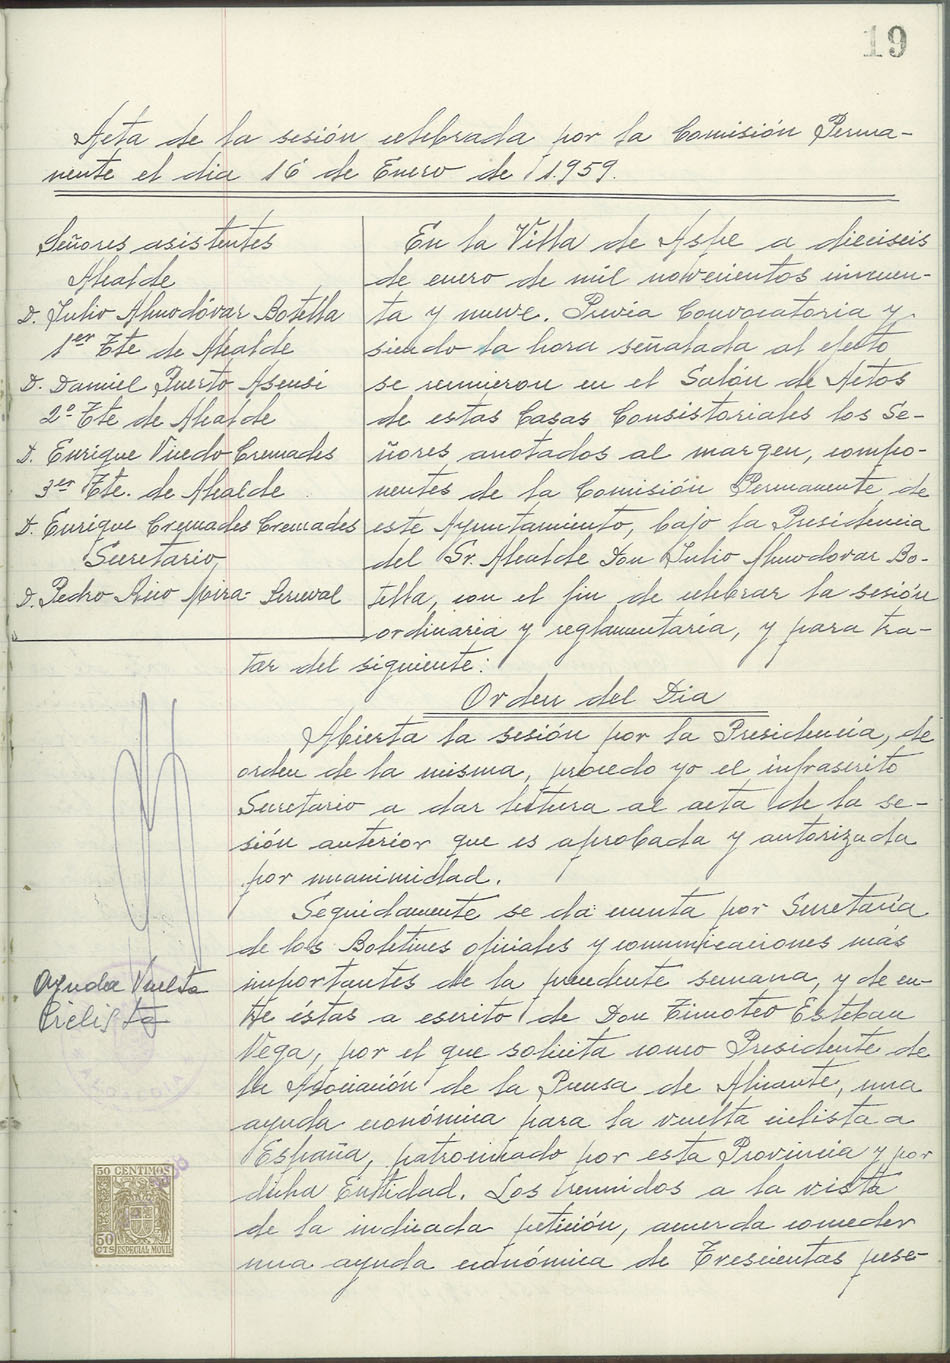 19
Acta de la sesión celebrada por la Comisión Perma-
nente el dia 16 de Enero de 1.959.
Señores asistentes
Alcalde
D. Julio Almodóvar Botella
1er Tte de Alcalde
D. Daniel Puerto Asensi
2º Tte de Alcalde
D. Enrique Vicedo Cremades
3er Tte. de Alcalde
D. Enrique Cremades Cremades
Secretario,
D. Pedro Rico Mira-Perceval
En la Villa de Aspe a dieciseis
de enero de mil novecientos cincuen-
ta y nueve. Previa Convocatoria y
siendo la hora señalada al efecto
se reunieron en el Salón de Actos
de estas Casas Consistoriales los Se-
ñores anotados al margen, compo-
nentes de la Comisión Permanente de
este Ayuntamiento, bajo la Presidencia
del Sr. Alcalde Don Julio Almodovar Bo-
tella, con el fin de celebrar la sesión
ordinaria y reglamentaria, y para tra-
tar del siguiente:
Orden del Dia
Abierta la sesión por la Presidencia, de
orden de la misma, procedo yo el infrascrito
Secretario a dar lectura al acta de la se-
sión anterior que es aprobada y autorizada
por unanimidad.
Seguidamente se da cuenta por Secretaría
de los Boletines oficiales y comunicaciones más
importantes de la precedente semana, y de en-
tre éstas a escrito de Don Timoteo Esteban
Vega, por el que solicita como Presidente de
la Asociación de la Prensa de Alicante, una
ayuda económica para la vuelta ciclista a
España, patrocinado por esta Provincia y por
dicha Entidad. Los reunidos a la vista
de la indicada petición, acuerda conceder
una ayuda económica de Trescientas pese-
Ayuda Vuelta
Ciclista
ALCALDIA
50 CENTIMOS
50
CTS
ESPECIAL MOVIL